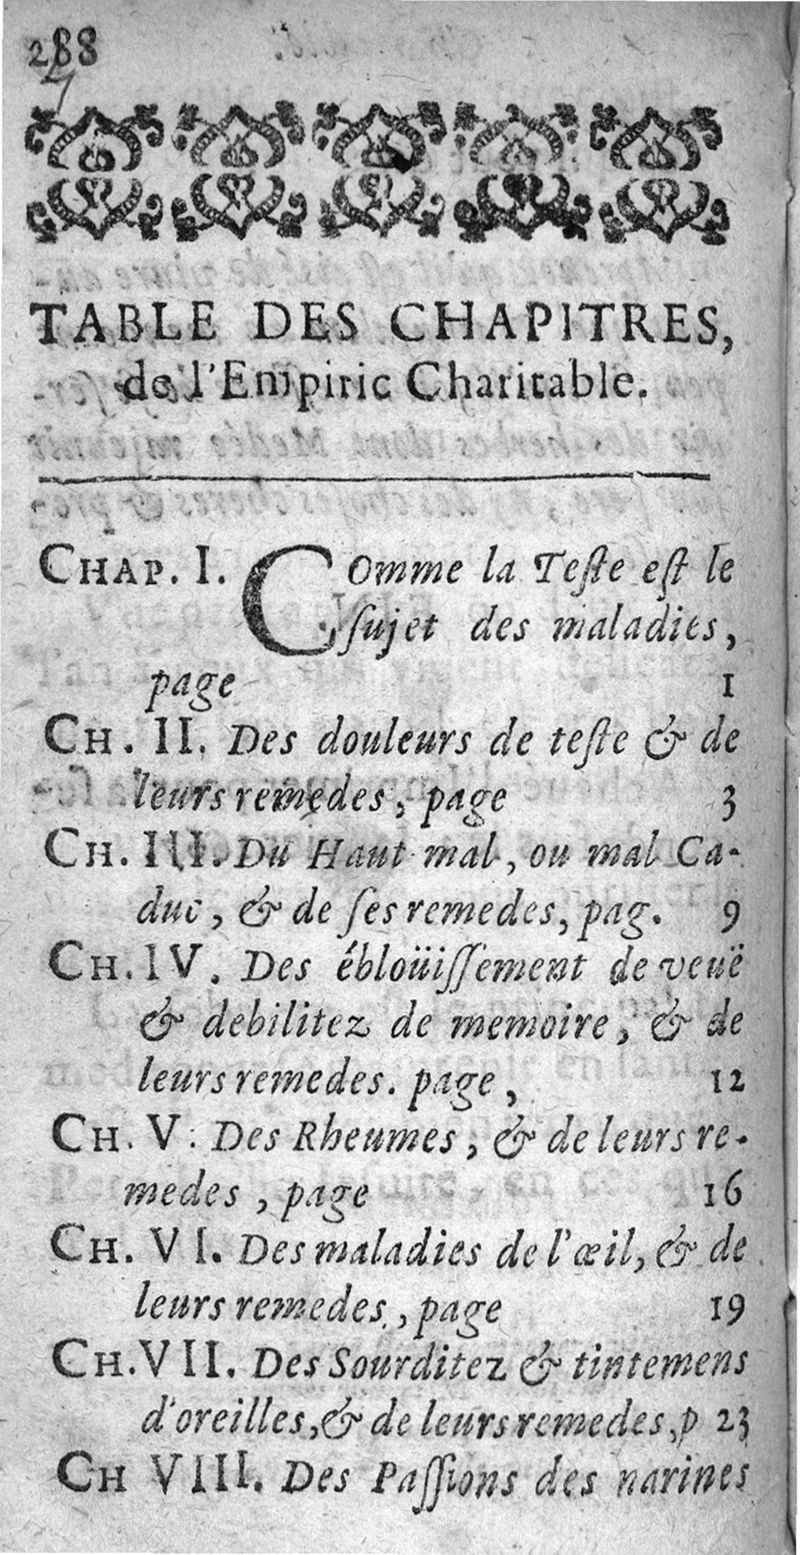 288
TABLE DES CHAPITRES,
de l'Empiric Charitable.
CHAP. I. COmme la Teſte eſt le
ſujet des maladies,
page 1
CH. II. Des douleurs de teſte & de
leurs remedes, page 3
CH. III. Du Haut mal, ou mal Ca-
duc, & de ſes remedes, pag. 9
CH. IV. Des ébloüiſſement de veuë
& debilitez de memoire, & de
leurs remedes. page, 12
CH. V. Des Rheumes, & de leurs re-
medes, page 16
CH. VI. Des maladies de l'œil, & de
leurs remedes, page 19
CH. VII. Des Sourditez & tintemens
d'oreilles, & de leurs remedes, p 23
CH VIII. Des Paſſions des narines